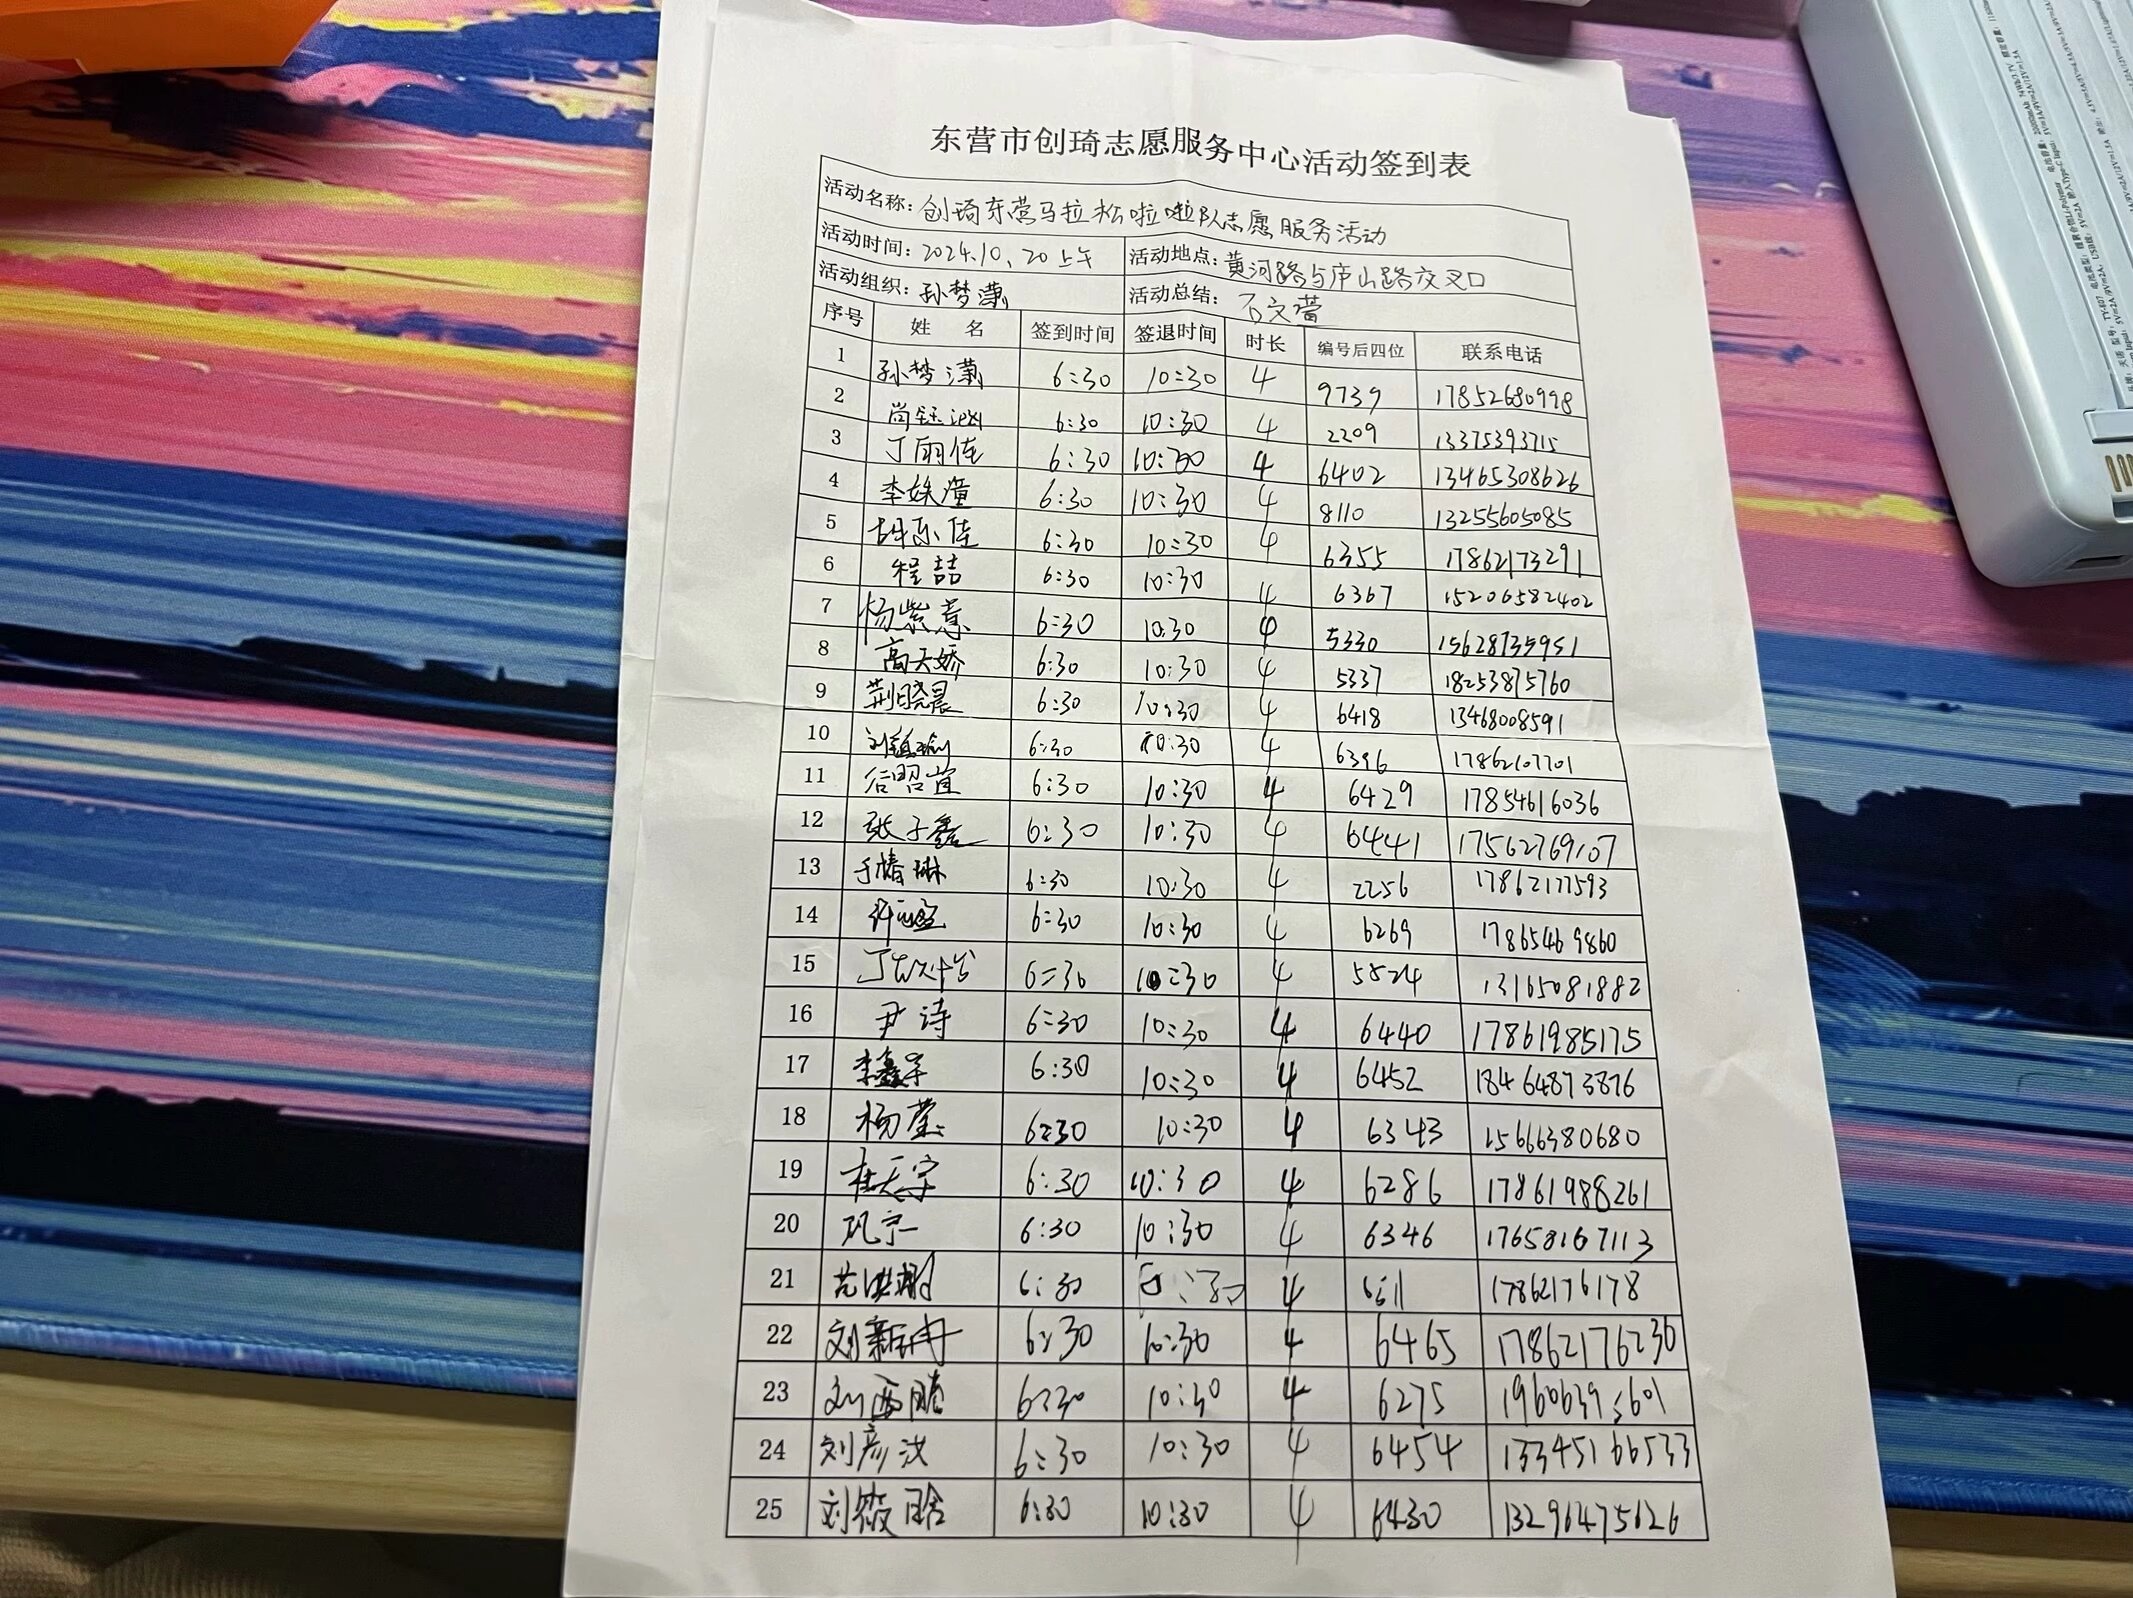 东营市创琦志愿服务中心活动签到表
活动名称：创琦东营马拉松啦啦队志愿服务活动
活动时间：2024.10.20上午 活动地点：黄河路与庐山路交叉口
活动组织：孙梦潇 活动总结：石文萱
序号 姓 名 签到时间 签退时间 时长 编号后四位 联系电话
1 孙梦潇 6:30 10:30 4 9739 17852680998
2 6:30 10:30 4 2209 13375393715
3 丁雨佳 6:30 10:30 4 6402 13465308626
4 李姝潼 6:30 10:30 4 8110 13255605085
5 胡乐佳 6:30 10:30 4 6355 17862173291
6 程喆 6:30 10:30 4 6367 15206582402
7 杨紫薏 6:30 10:30 4 5330 15628735951
8 高天娇 6:30 10:30 4 5337 18253875760
9 荆晓晨 6:30 10:30 4 6418 13468008591
10 6:30 10:30 4 6396 17862107701
11 后昭宜 6:30 10:30 4 6429 17854616036
12 张子鑫 6:30 10:30 4 6441 17562769107
13 于椿琳 6:30 10:30 4 2256 17862177593
14 6:30 10:30 4 6269 17865469860
15 6:30 10:30 4 5824 13165081882
16 尹诗 6:30 10:30 4 6440 17861985175
17 李鑫宇 6:30 10:30 4 6452 18464873876
18 杨莹 6:30 10:30 4 6343 15666380680
19 杜天宇 6:30 10:30 4 6286 17861988261
20 巩宁一 6:30 10:30 4 6346 17658167113
21 6:30 10:30 4 17862176178
22 刘新冉 6:30 10:30 4 6465 17862176236
23 刘西腾 6:30 10:30 4 6275 19606395601
24 刘彦汝 6:30 10:30 4 6454 13345166533
25 刘筱晗 6:30 10:30 4 6430 13296475626